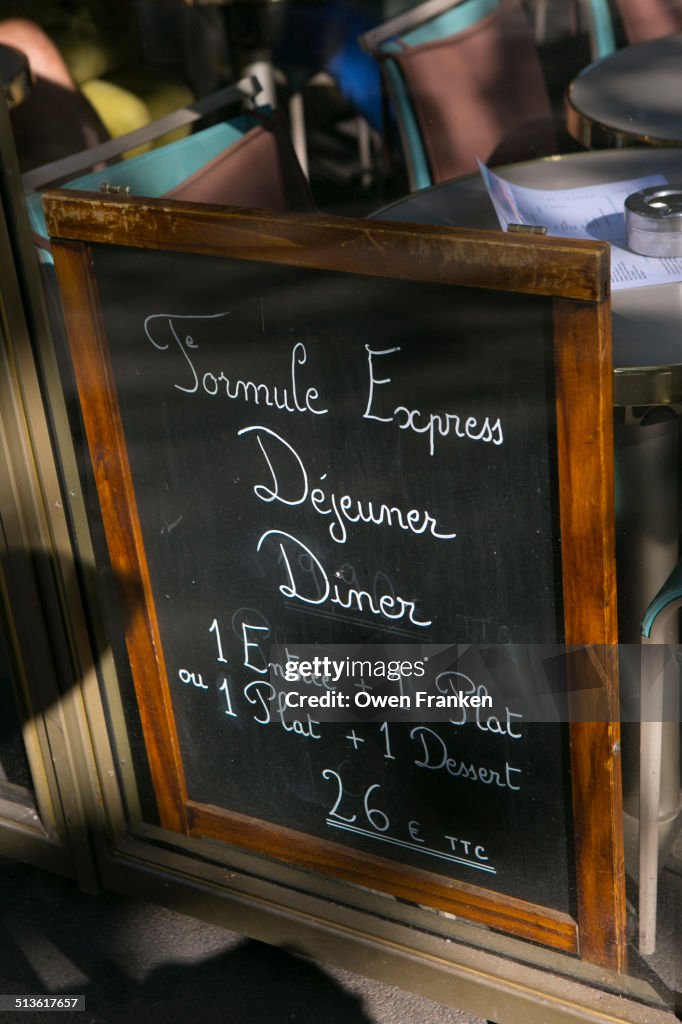 Formule Express
Déjeuner
Dîner
1 Entrée + 1 Plat
ou 1 Plat + 1 Dessert
26 € TTC
gettyimages®
Credit: Owen Franken
513617657